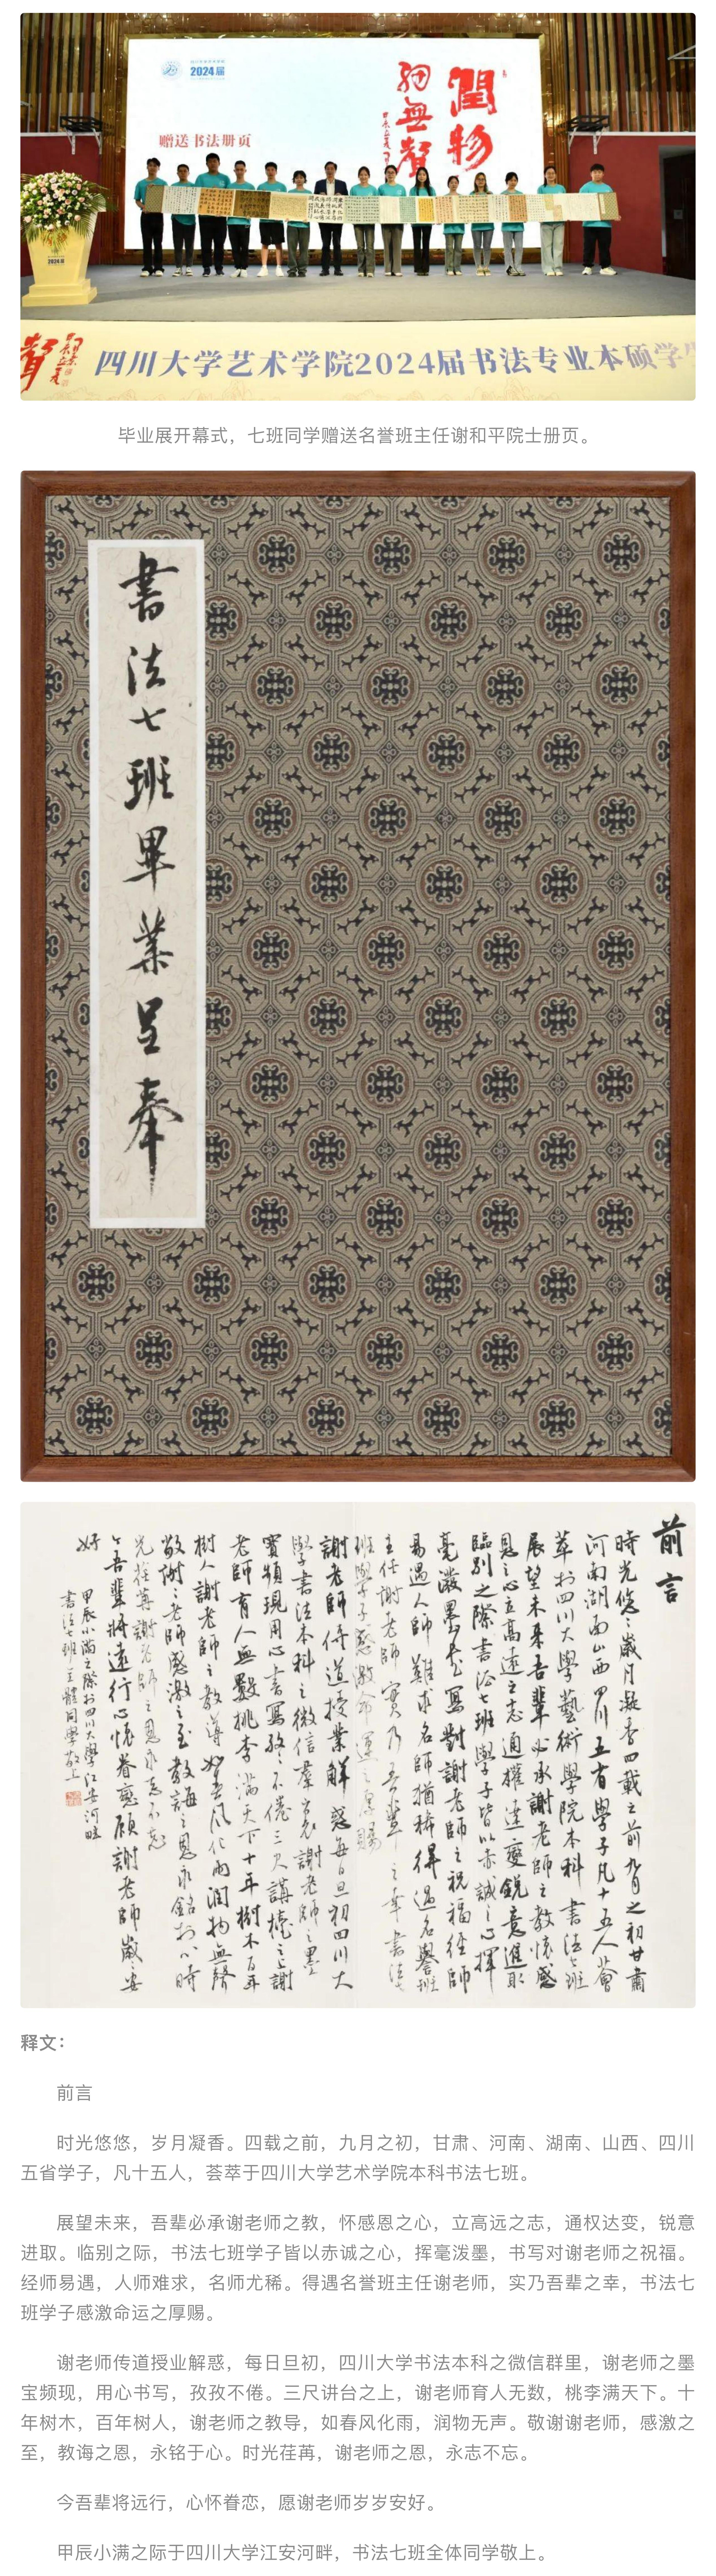 2024届
润物
细无声
赠送书法册页
2024届
四川大学艺术学院2024届书法专业本硕学
毕业展开幕式，七班同学赠送名誉班主任谢和平院士册页。
書法七班畢業呈奉
前言
時光悠〻歲月凝香四載之前九月之初甘肅
河南湖南山西四川五省學子凡十五人薈
萃於四川大學藝術學院本科書法七班
展望未来吾輩必承謝老師之教懷感
恩之心立高遠之志通權達變鋭意進取
臨别之際書法七班學子皆以赤誠之心揮
毫潑墨書寫對謝老師之祝福经師
易遇人師難求名師猶稀得遇名譽班
主任謝老師實乃吾輩之幸書法七
班學子感激命運之厚賜
謝老師传道授業解惑每日旦初四川大
學書法本科之微信羣裏謝老師之墨
寶頻現用心書寫孜〻不倦三尺講檯之上謝
老師育人無數桃李滿天下十年樹木百年
樹人謝老師之教導如春风化雨润物無聲
敬謝〻老師感激之至教誨之恩永銘於心時
光荏苒謝老師之恩永志不忘
今吾輩將遠行心懷眷戀願謝老師歲〻安
好
甲辰小滿之際於四川大學江安河畔
書法七班全體同學敬上
释文：
前言
时光悠悠，岁月凝香。四载之前，九月之初，甘肃、河南、湖南、山西、四川
五省学子，凡十五人，荟萃于四川大学艺术学院本科书法七班。
展望未来，吾辈必承谢老师之教，怀感恩之心，立高远之志，通权达变，锐意
进取。临别之际，书法七班学子皆以赤诚之心，挥毫泼墨，书写对谢老师之祝福。
经师易遇，人师难求，名师尤稀。得遇名誉班主任谢老师，实乃吾辈之幸，书法七
班学子感激命运之厚赐。
谢老师传道授业解惑，每日旦初，四川大学书法本科之微信群里，谢老师之墨
宝频现，用心书写，孜孜不倦。三尺讲台之上，谢老师育人无数，桃李满天下。十
年树木，百年树人，谢老师之教导，如春风化雨，润物无声。敬谢谢老师，感激之
至，教诲之恩，永铭于心。时光荏苒，谢老师之恩，永志不忘。
今吾辈将远行，心怀眷恋，愿谢老师岁岁安好。
甲辰小满之际于四川大学江安河畔，书法七班全体同学敬上。